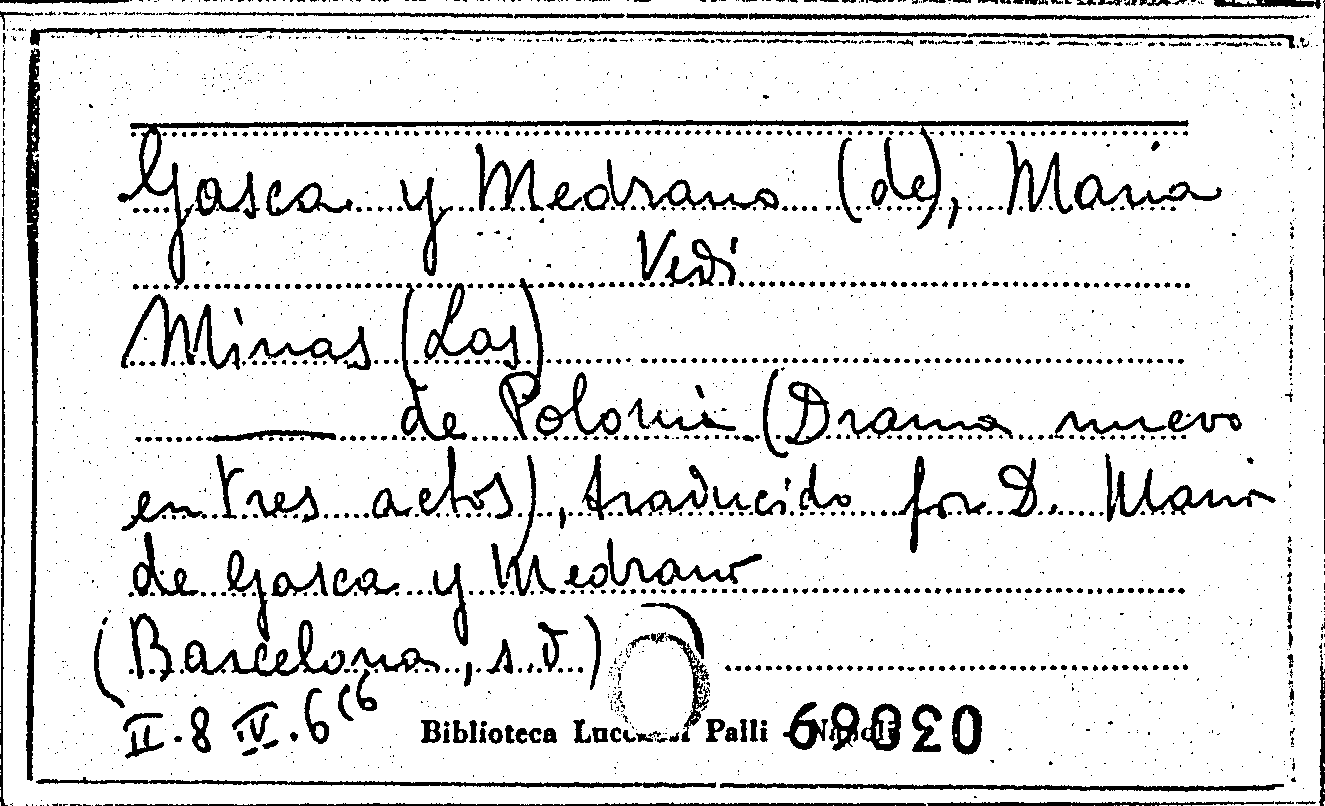 Gasca y Medrano (de), Maria
Vedi
Minas (Las)
de Polonia (Drama nuevo
en tres actos), traducido for D. Maria
de Gasca y Medrano
(Barcelona, s.d.)
II.8.IV.6(6
Biblioteca Lucchesi Palli - Napoli